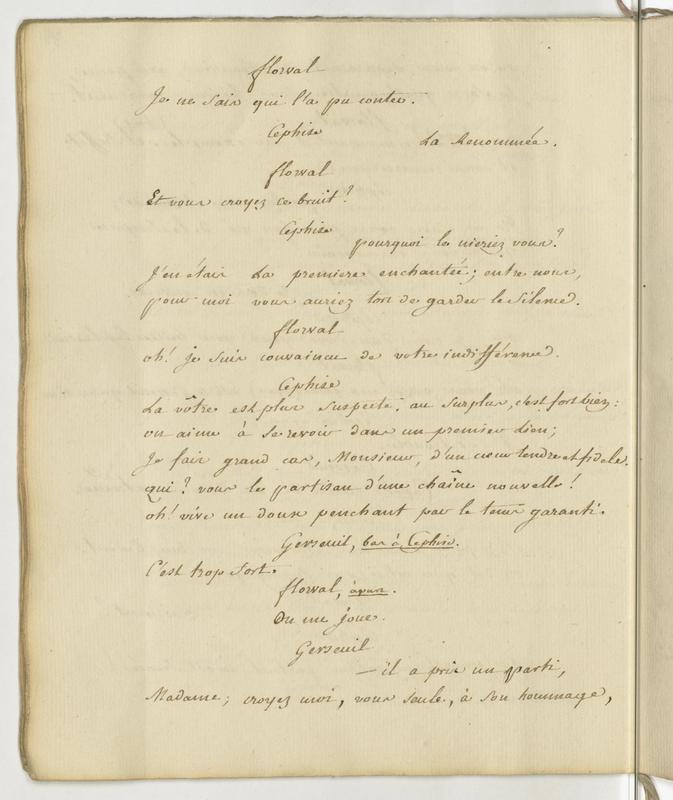 florval
Je ne sais qui l'a pu conter.
Cephise
La Renommée.
florval
Et vous croyez ce bruit?
Cephise
pourquoi le nieriez vous?
J'en étais La premiere enchantée; entre nous,
pour moi vous auriez tort de garder le silence.
florval
oh! je suis convaincu de votre indifférence.
Cephise
La vôtre est plus suspecte; au surplus, c'est fort bien:
on aime à se revoir dans un premier lien;
Je fais grand cas, Monsieur, d'un coeur tendre et fidele.
qui? vous le partisan d'une chaîne nouvelle!
oh! vive un doux penchant par le tems garanti.
Gerseuil, bas à Cephise.
C'est trop fort.
florval, àpart.
On me joue.
Gerseuil
— il a pris un parti,
Madame; croyez moi, vous seule, à son hommage,